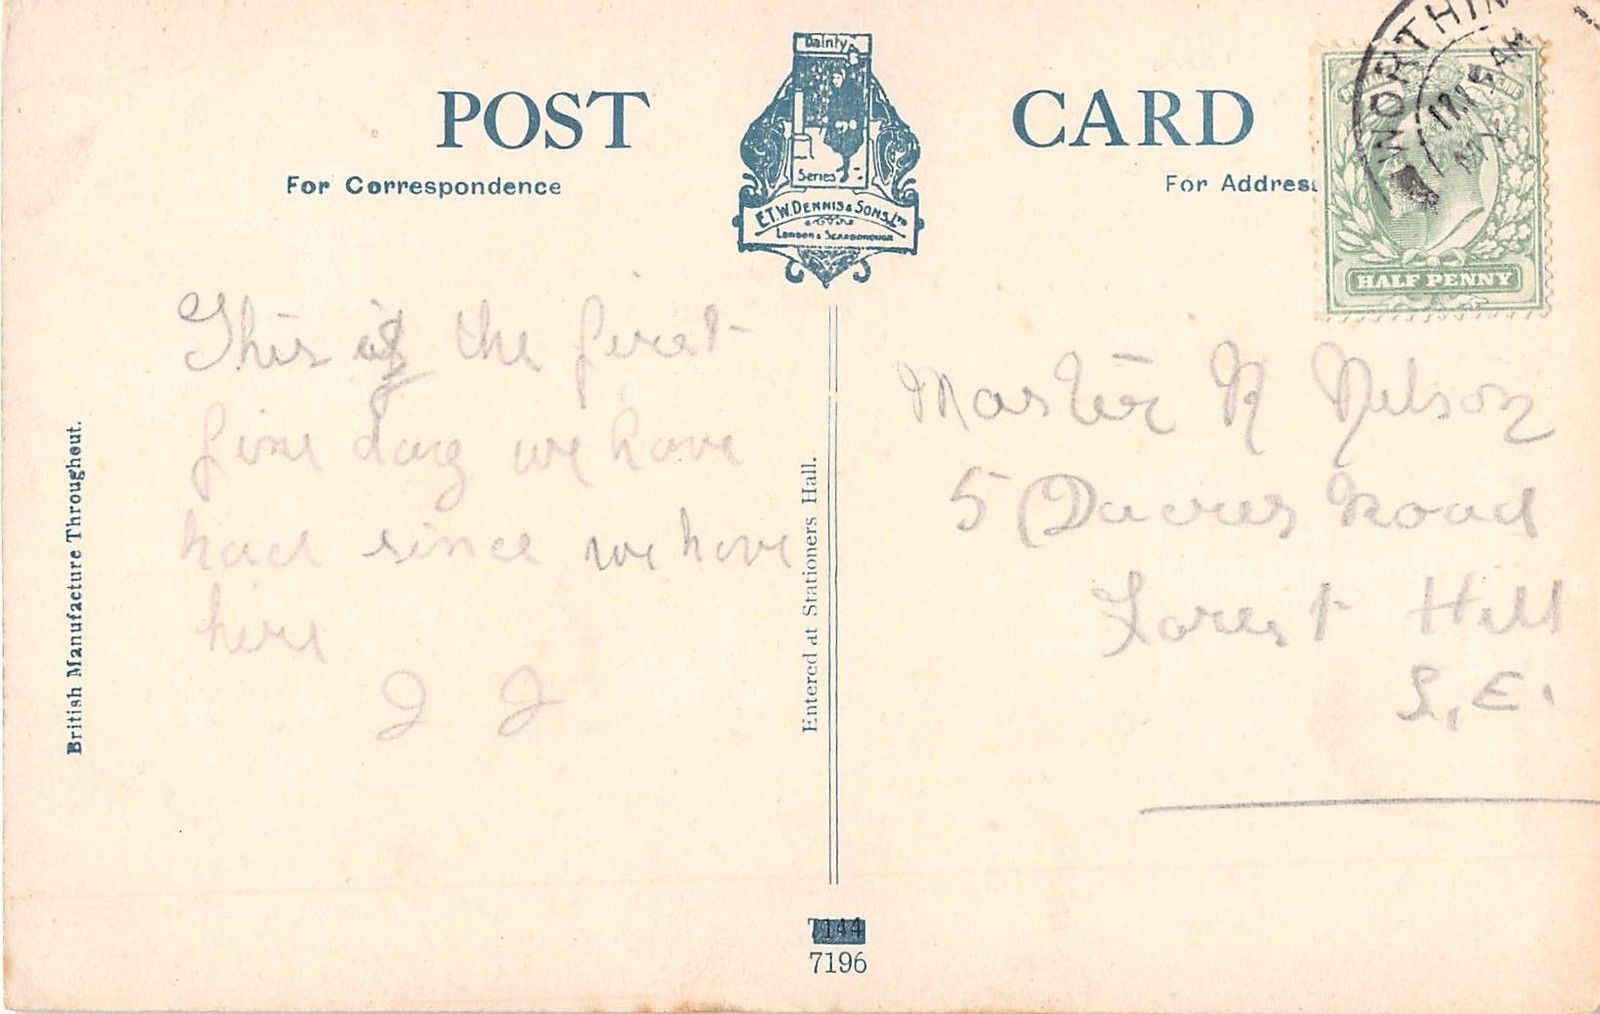 POST CARD
For Correspondence
For Address
Dainty
Series
E.T.W. DENNIS & SONS, LTD
LONDON & SCARBOROUGH
WORTHING
HALF PENNY
This is the first
fine day we have
had since we have
here
J J
Master R Nelson
5 Dacres Road
Forest Hill
S.E.
British Manufacture Throughout.
Entered at Stationers Hall.
7144
7196